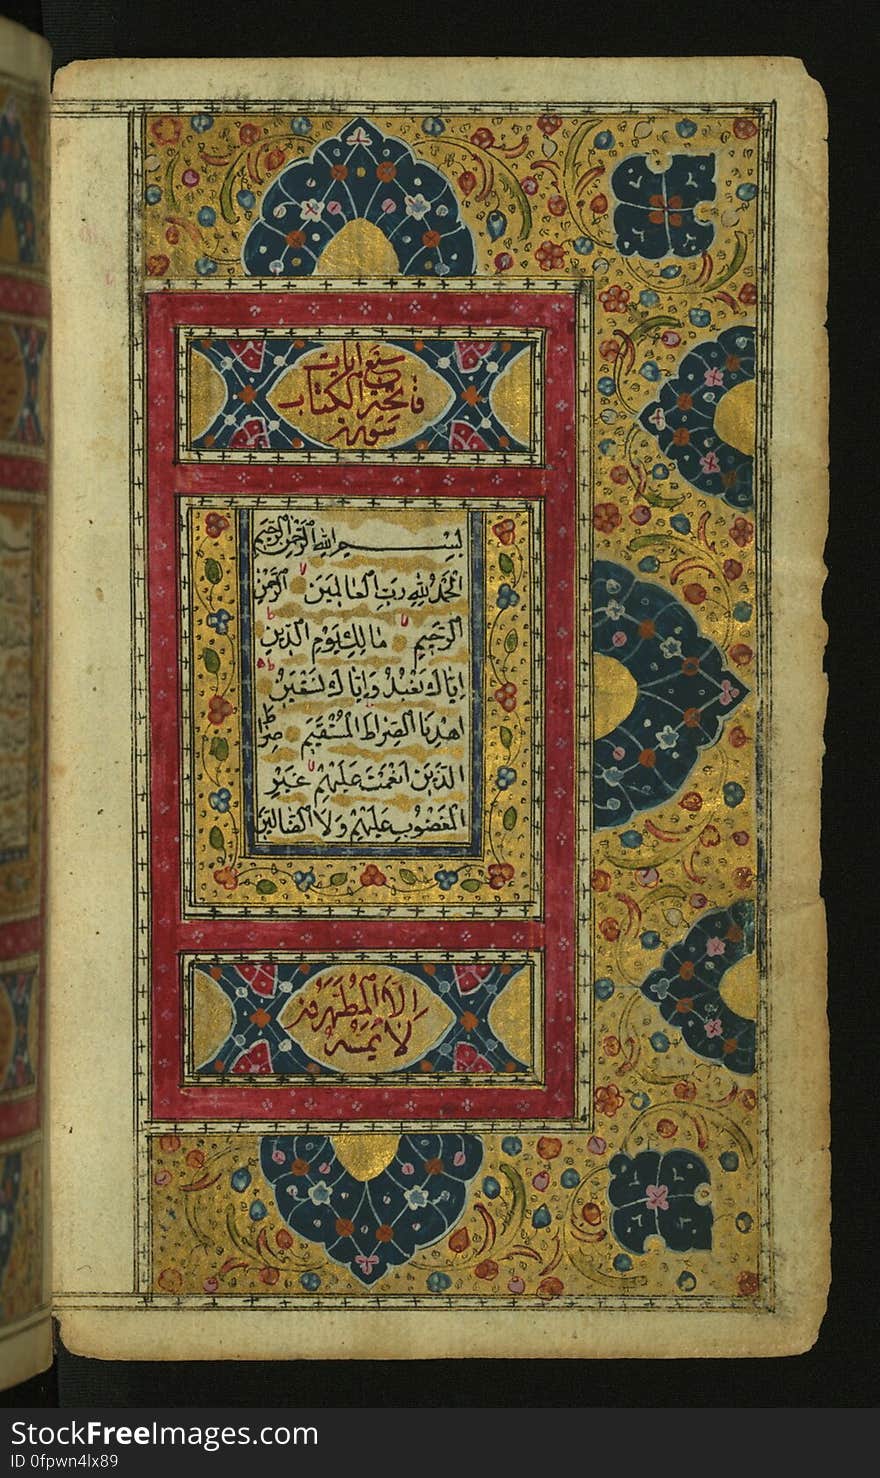 سبع ايات
فاتحة الكتاب
سورة
بِسْمِ اللهِ الرَّحْمٰنِ الرَّحِيمِ
اَلْحَمْدُ لِلهِ رَبِّ الْعَالَمِينَ الرَّحْمٰنِ
الرَّحِيمِ مَالِكِ يَوْمِ الدِّينِ
اِيَّاكَ نَعْبُدُ وَاِيَّاكَ نَسْتَعِينُ
اهْدِنَا الصِّرَاطَ الْمُسْتَقِيمَ صِرَاطَ
الَّذِينَ اَنْعَمْتَ عَلَيْهِمْ غَيْرِ
الْمَغْضُوبِ عَلَيْهِمْ وَلَا الضَّالِّينَ
اِلَّا الْمُطَهَّرُونَ
لَا يَمَسُّهُ
StockFreeImages.com
ID 0fpwn4lx89